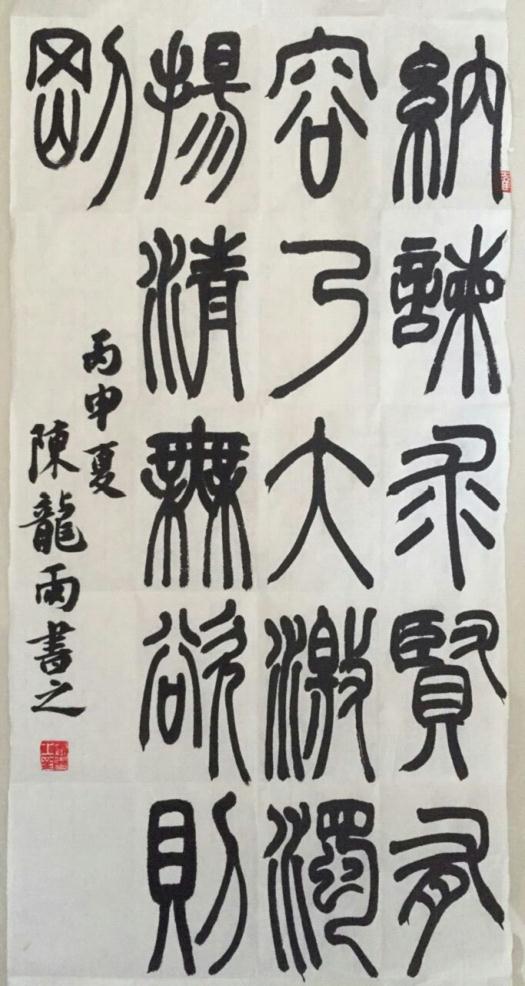 納諫求賢有
容乃大激濁
揚清無欲則
剛
丙申夏
陳龍雨書之